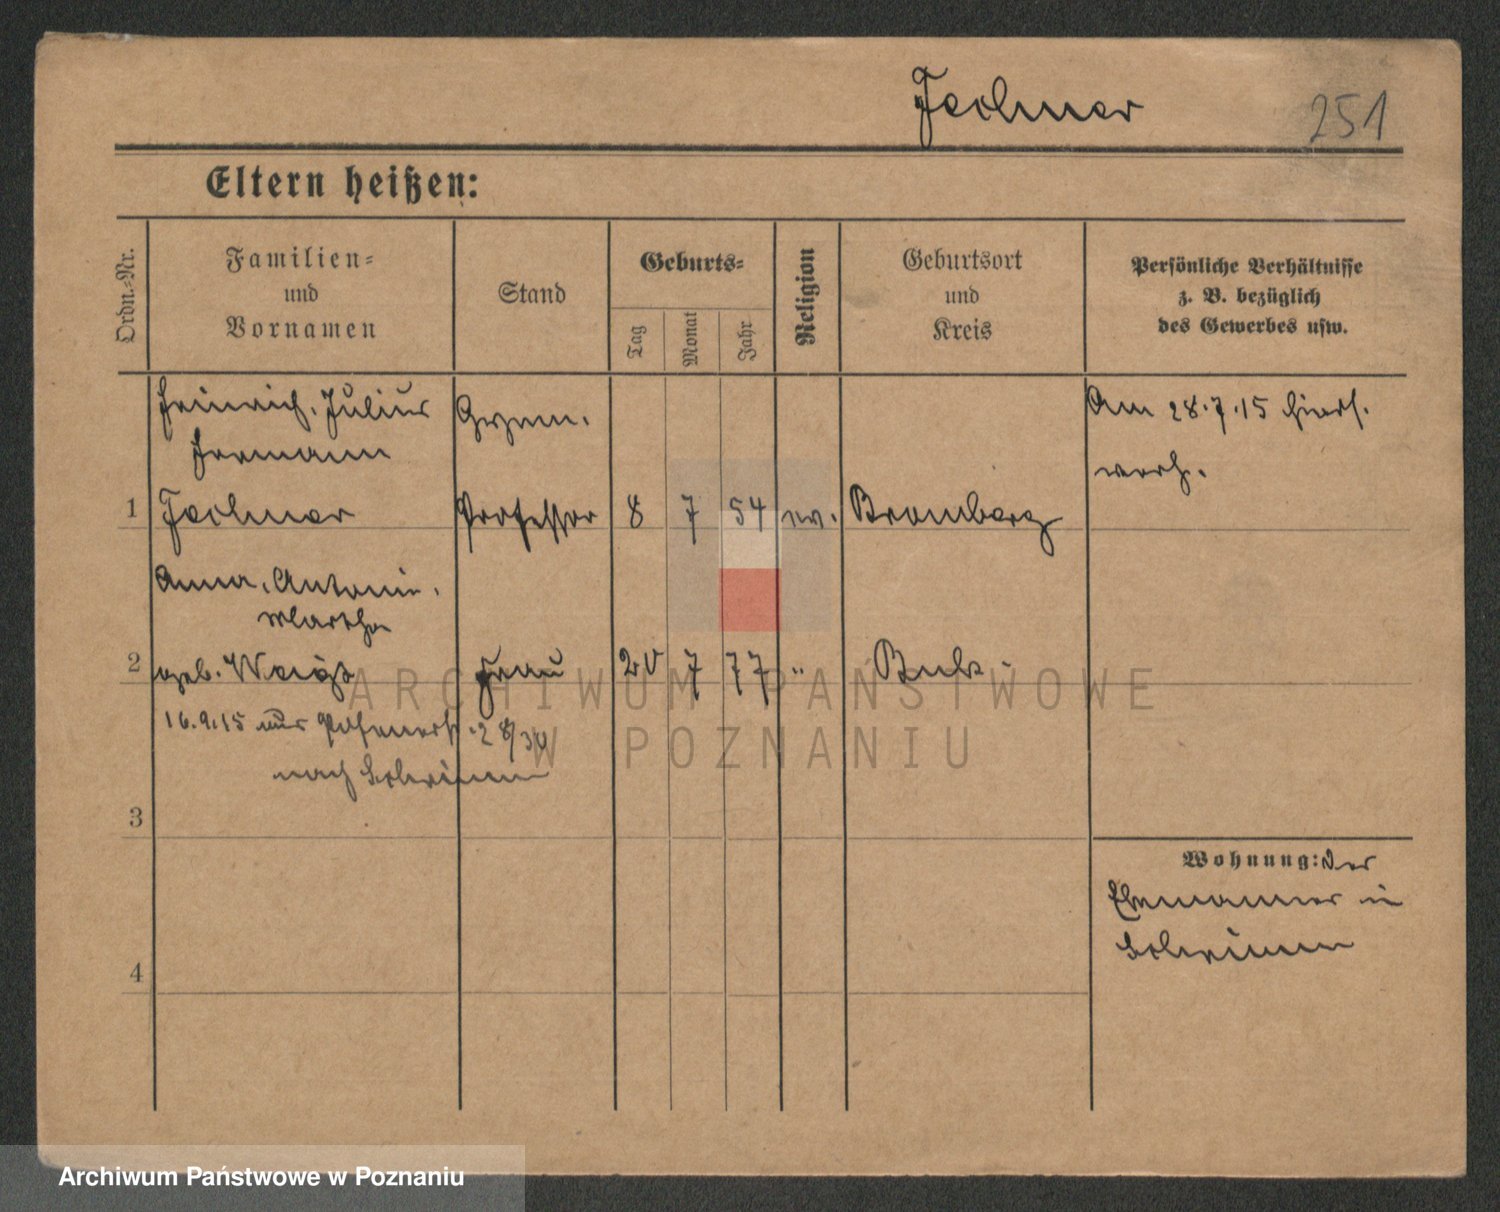 Fechner
251
Eltern heißen:
Ordn.-Nr.
Familien-
und
Vornamen
Stand
Geburts-
Tag
Monat
Jahr
Religion
Geburtsort
und
Kreis
Persönliche Verhältnisse
z. B. bezüglich
des Gewerbes usw.
Heinrich, Julius
Hermann
1 Fechner
Gymn.
Professor
8 7 54 ev. Bromberg
Am 28.7.15 hiers.
verh.
Anna, Antonie,
Martha
2 geb. Frau 20 7 77 " Buk
16.9.15 aus Posenerstr. 28/30
nach Schwerin
3
Wohnung: des
Ehemannes in
Schwerin
4
ARCHIWUM PAŃSTWOWE
W POZNANIU
Archiwum Państwowe w Poznaniu